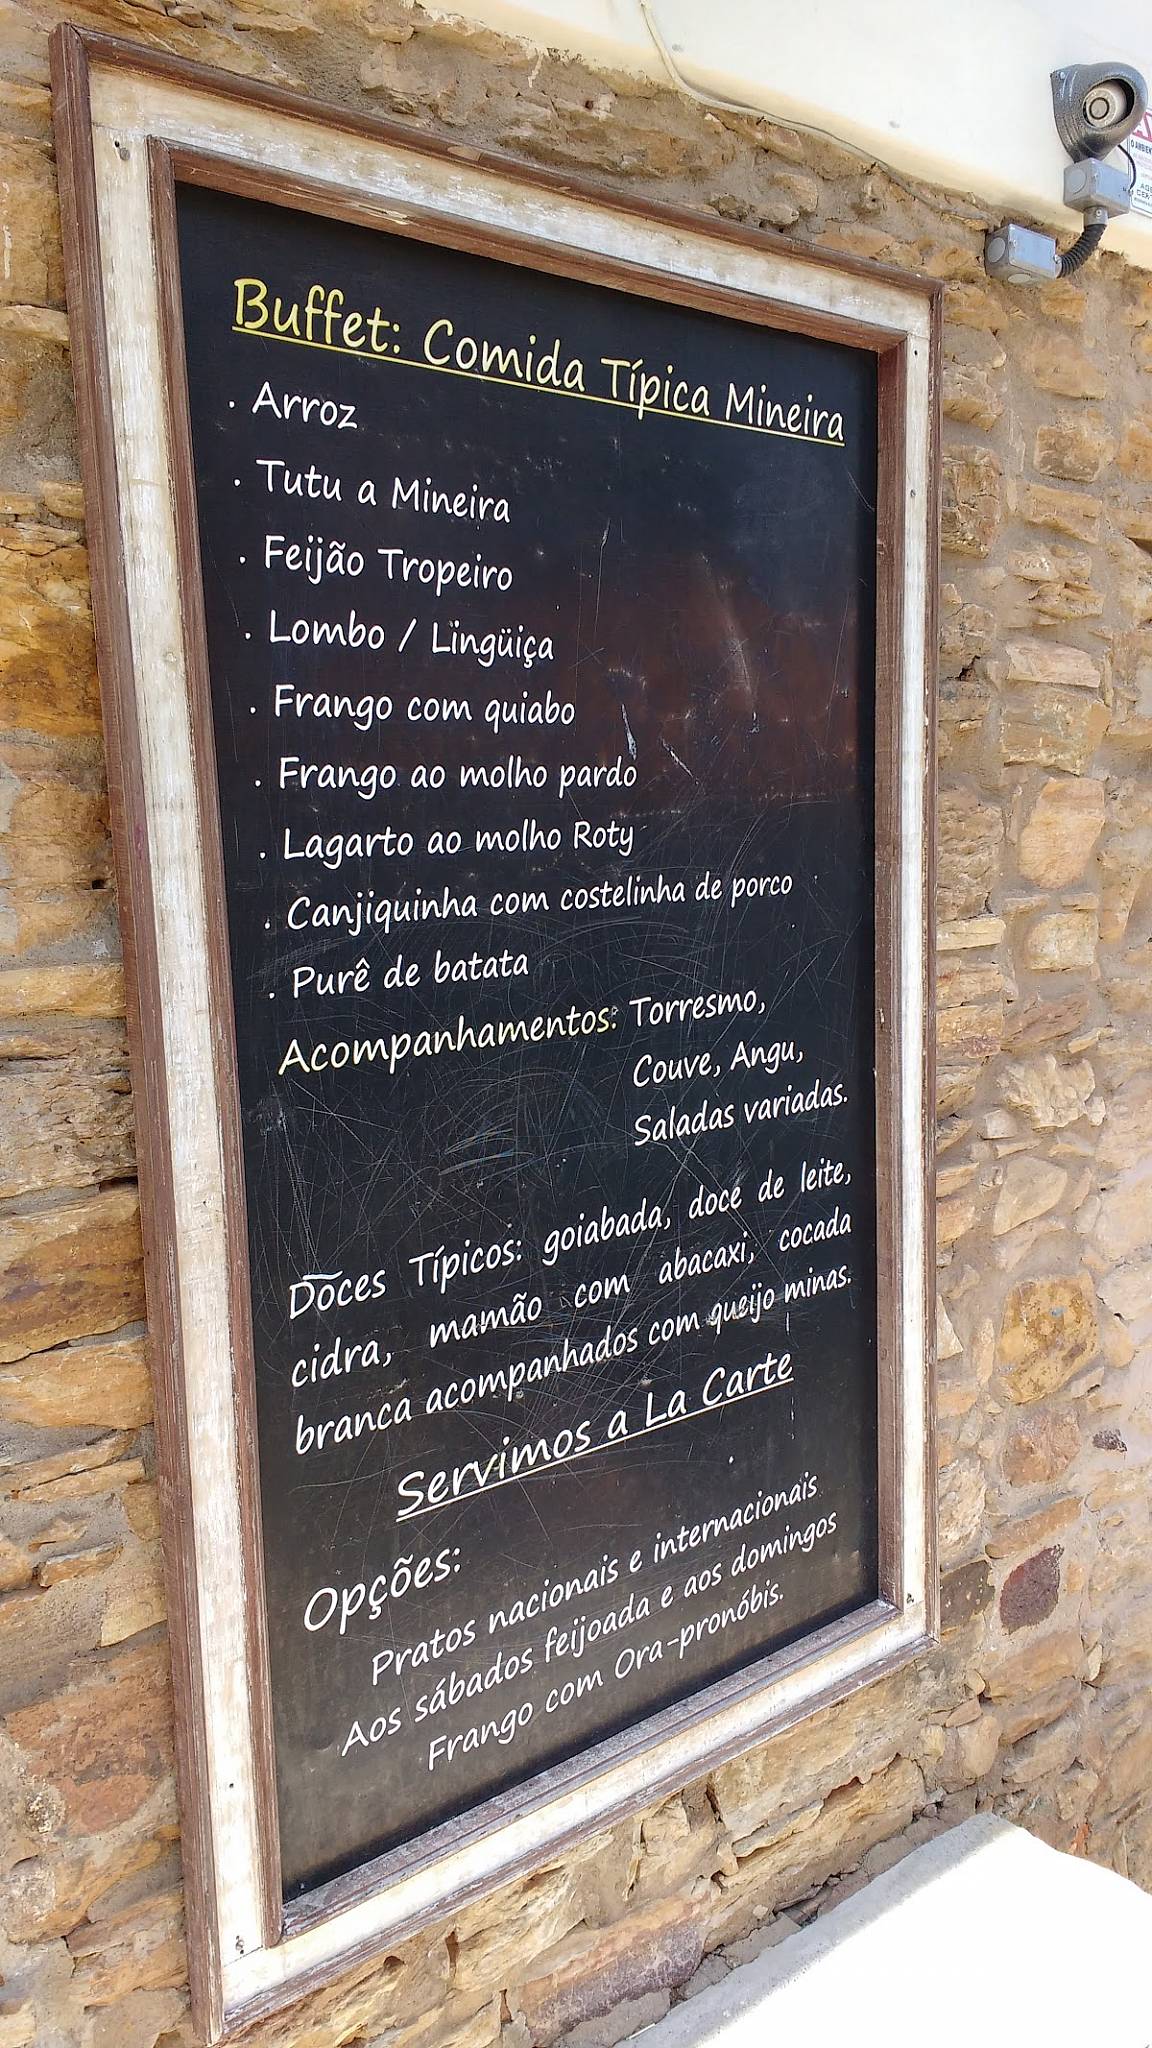 Buffet: Comida Típica Mineira
. Arroz
. Tutu a Mineira
. Feijão Tropeiro
. Lombo / Lingüiça
. Frango com quiabo
. Frango ao molho pardo
. Lagarto ao molho Roty
. Canjiquinha com costelinha de porco
. Purê de batata
Acompanhamentos: Torresmo,
Couve, Angu,
Saladas variadas.
Doces Típicos: goiabada, doce de leite,
cidra, mamão com abacaxi, cocada
branca acompanhados com queijo minas.
Servimos a La Carte
Opções:
Pratos nacionais e internacionais
Aos sábados feijoada e aos domingos
Frango com Ora-pronóbis.